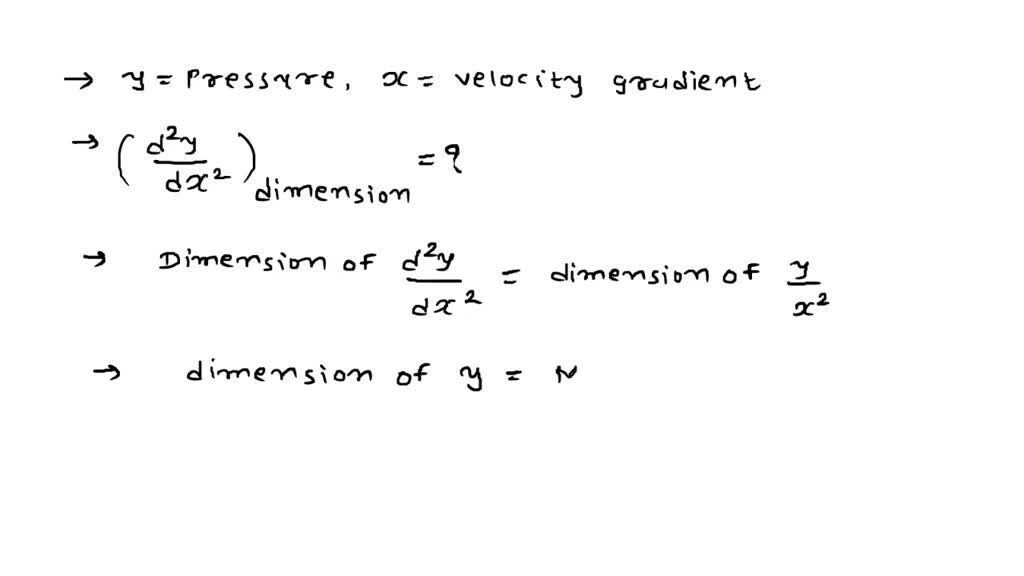 → y = Pressure, x = velocity gradient
→ (d²y/dx²) dimension = ?
→ Dimension of d²y/dx² = dimension of y/x²
→ dimension of y =